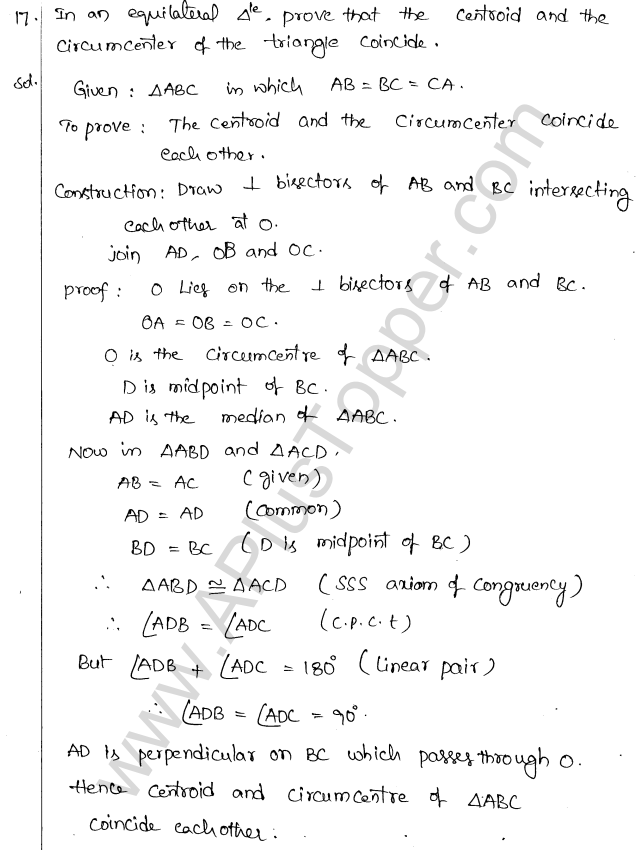 17. In an equilateral Δle, prove that the centroid and the
circumcenter of the triangle coincide.
Sol. Given : ΔABC in which AB = BC = CA.
To prove : The centroid and the circumcenter coincide
each other.
Construction: Draw ⊥ bisectors of AB and BC intersecting
each other at O.
join AD, OB and OC.
proof : O Lies on the ⊥ bisectors of AB and BC.
OA = OB = OC.
O is the circumcentre of ΔABC.
D is midpoint of BC.
AD is the median of ΔABC.
Now in ΔABD and ΔACD,
AB = AC (given)
AD = AD (common)
BD = BC (D is midpoint of BC)
∴ ΔABD ≅ ΔACD (SSS axiom of congruency)
∴ ∠ADB = ∠ADC (c.p.c.t)
But ∠ADB + ∠ADC = 180° (linear pair)
∴ ∠ADB = ∠ADC = 90°.
AD is perpendicular on BC which passes through O.
Hence centroid and circumcentre of ΔABC
coincide each other.
www.APlusTopper.com